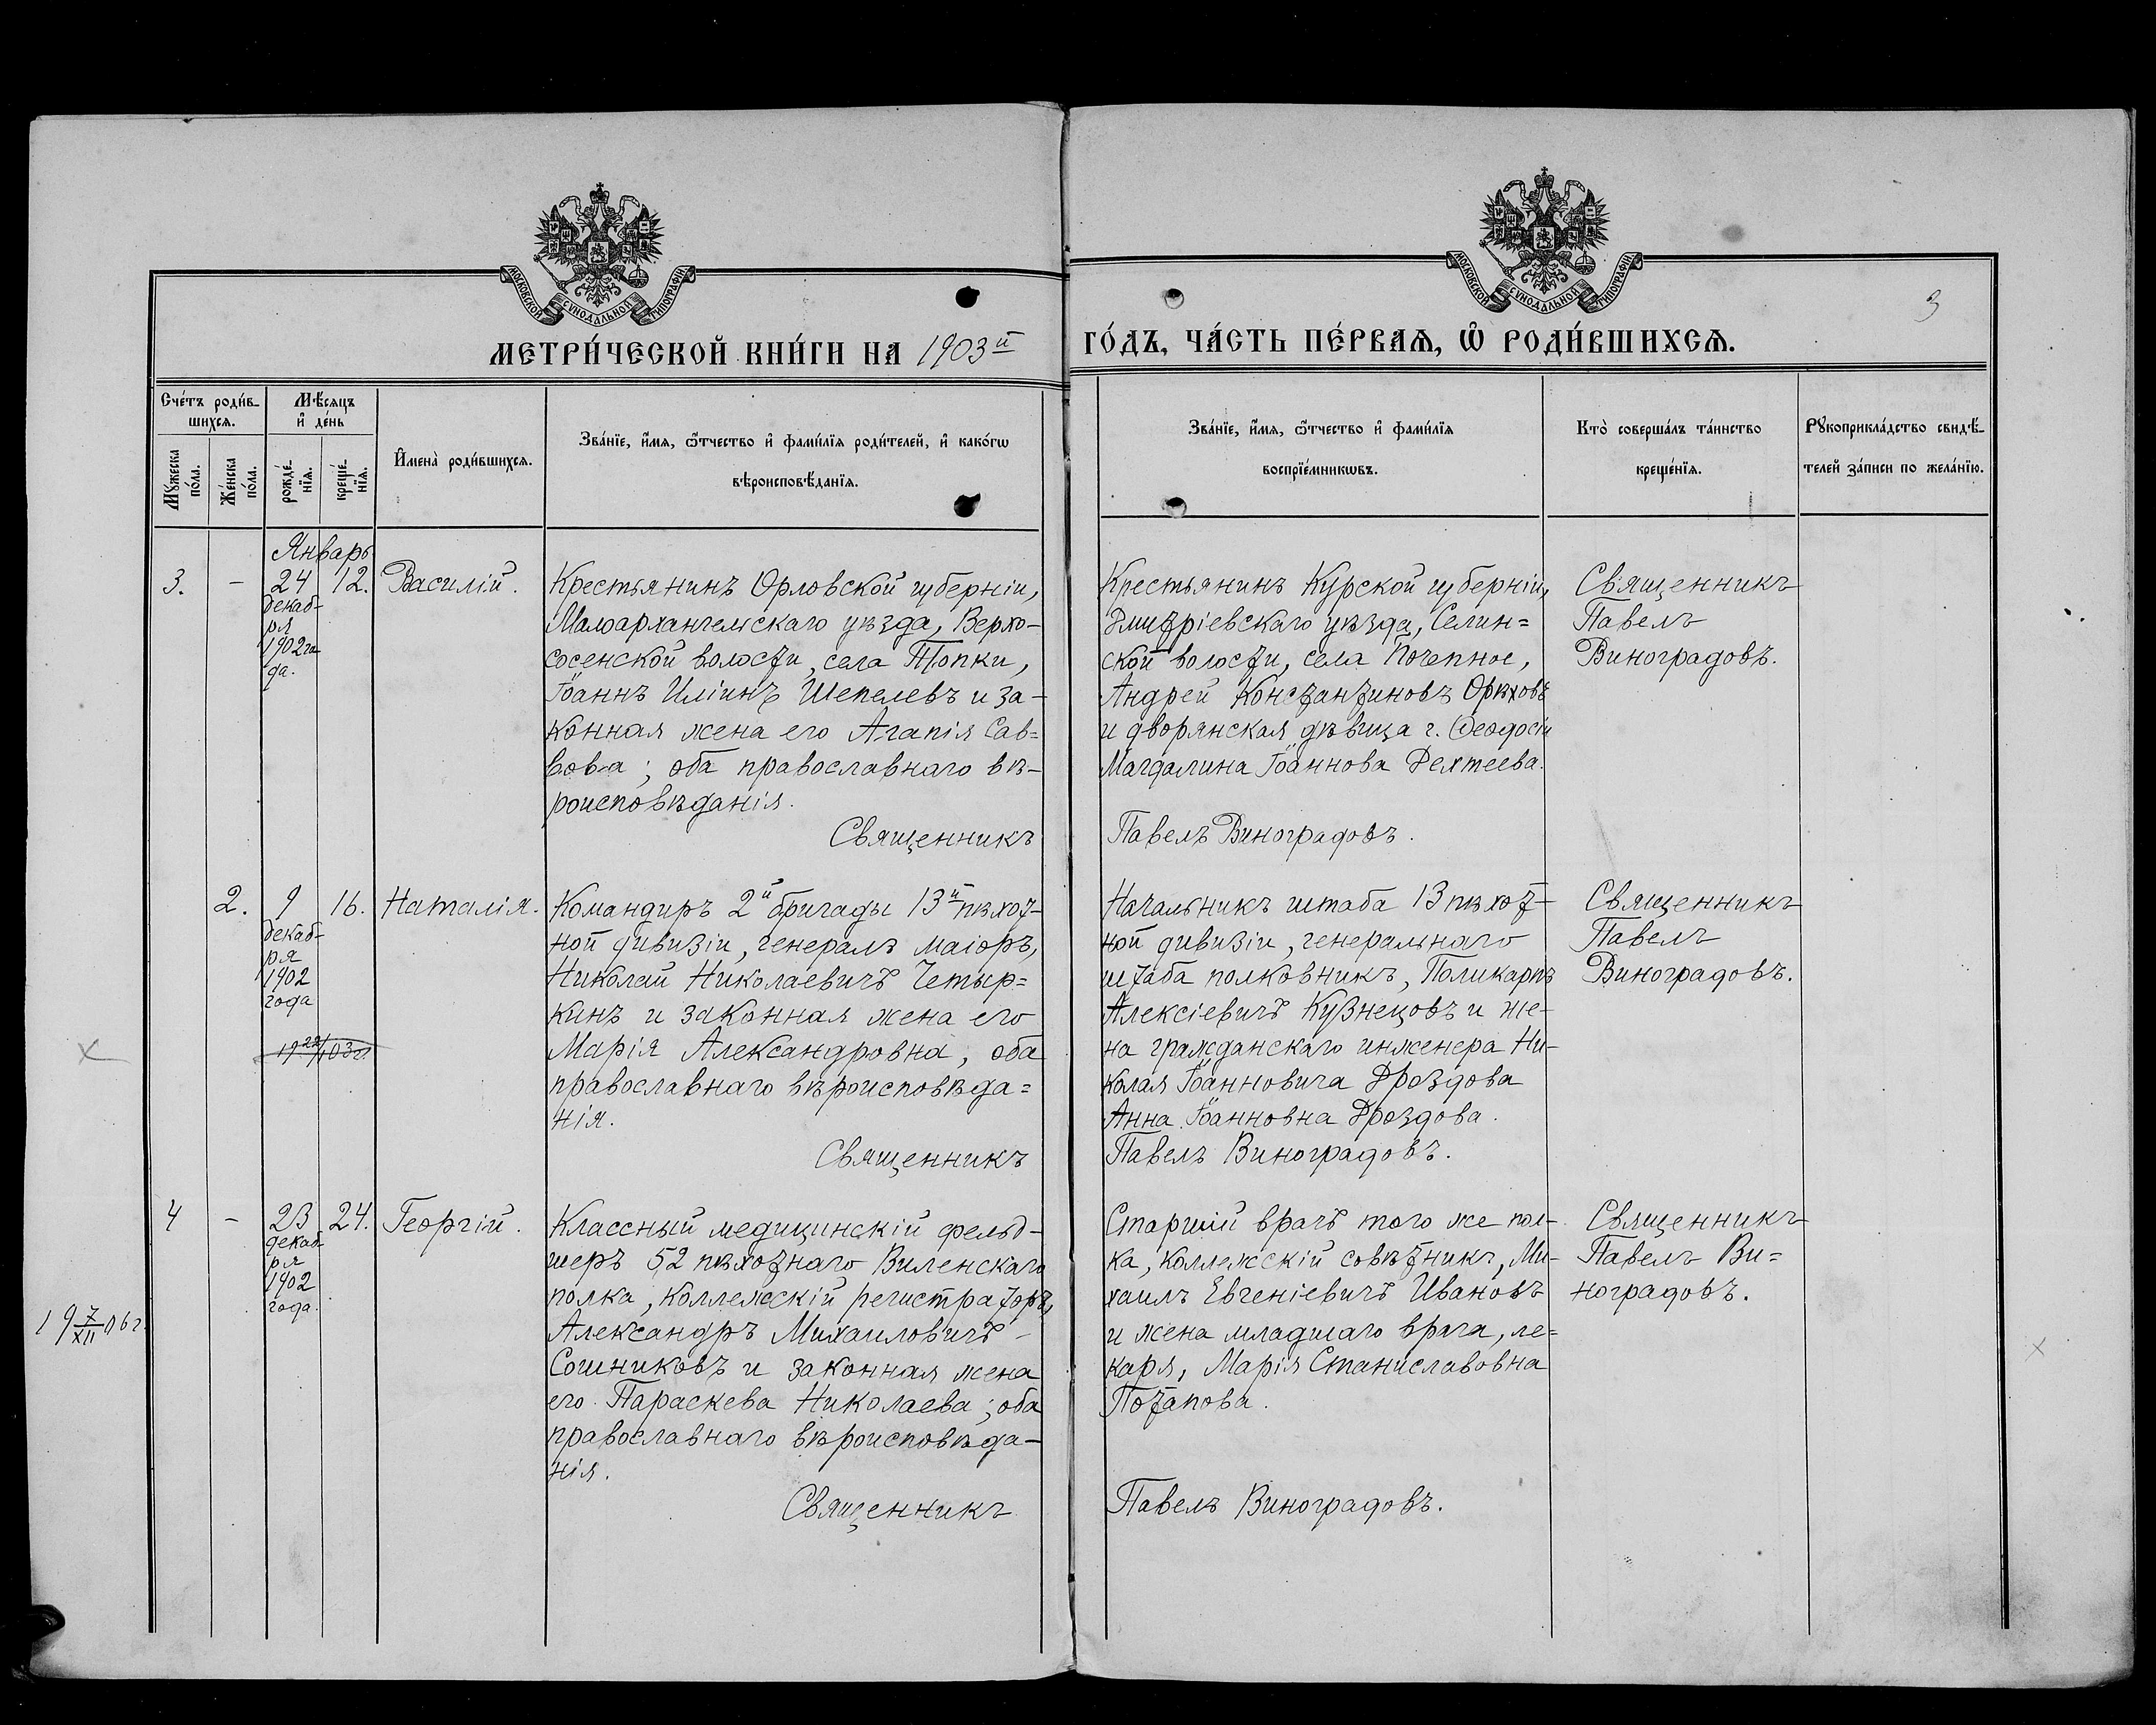 МОСКОВСКОЙ СѴНОДАЛЬНОЙ ТИПОГРАФІИ
МОСКОВСКОЙ СѴНОДАЛЬНОЙ ТИПОГРАФІИ
3
МЕТРИ́ЧЕСКОЙ КНИ́ГИ НА 1903й ГО́ДЪ, ЧА́СТЬ ПЕ́РВАѦ, Ѡ҆ РОДИ́ВШИХСѦ.
Сче́тъ роди́в-
шихсѧ.
Мꙋ́жеска
по́ла.
Же́нска
по́ла.
Мѣ́сѧцъ
и҆ де́нь
рожде́-
нїѧ.
креще́-
нїѧ.
И҆мена̀ роди́вшихсѧ.
Зва́нїе, и҆́мѧ, ѻ҆́тчество и҆ фами́лїѧ роди́телей, и҆ како́гѡ
вѣроисповѣ́данїѧ.
Зва́нїе, и҆́мѧ, ѻ҆́тчество и҆ фами́лїѧ
воспрїе́мникѡвъ.
Кто̀ соверша́лъ та́инство
креще́нїѧ.
Рꙋкоприкла́дство свидѣ́-
телей за́писи по жела́нїю.
Январь
3. - 24 12. Василій.
декаб-
ря
1902 го-
да.
Крестьянинъ Орловской губерніи,
Малоархангельскаго уѣзда, Верхо-
сосенской волости, села Топки,
Іоаннъ Иліинъ Шепелевъ и за-
конная жена его Агапія Сав=
вова; оба православнаго вѣ-
роисповѣданія.
Священникъ
Крестьянинъ Курской губерніи,
Дмитріевскаго уѣзда, Селин=
ской волости, села Почепное,
Андрей Константиновъ Орѣховъ
и дворянская дѣвица г. Ѳеодосіи
Магдалина Іоаннова Дехтеева.
Павелъ Виноградовъ.
Священникъ
Павелъ
Виноградовъ.
2. 9 16. Наталія.
декаб-
ря
1902
года
Командиръ 2й бригады 13й пѣхот-
ной дивизіи, генералъ маіоръ,
Николай Николаевичъ Четыр=
кинъ и законная жена его
Марія Александровна, оба
православнаго вѣроисповѣда=
нія.
Священникъ
Начальникъ штаба 13 пѣхот-
ной дивизіи, генеральнаго
штаба полковникъ, Поликарпъ
Алексіевичъ Кузнецовъ и же-
на гражданскаго инженера Ни-
колая Іоанновича Дроздова
Анна Іоанновна Дроздова.
Павелъ Виноградовъ.
Священникъ
Павелъ
Виноградовъ.
4 - 23 24. Георгій.
декаб-
ря
1902
года.
19 7/XII 06 г.
Классный медицинскій фельд-
шеръ 52 пѣхотнаго Виленскаго
полка, коллежскій регистраторъ,
Александръ Михаиловичъ -
Сошниковъ и законная жена
его Параскева Николаева; оба
православнаго вѣроисповѣда-
нія.
Священникъ
Старшій врачъ того же пол-
ка, коллежскій совѣтникъ, Ми-
хаилъ Евгеніевичъ Ивановъ
и жена младшаго врача, ле=
каря, Марія Станиславовна
Потапова.
Павелъ Виноградовъ.
Священникъ
Павелъ Ви=
ноградовъ.